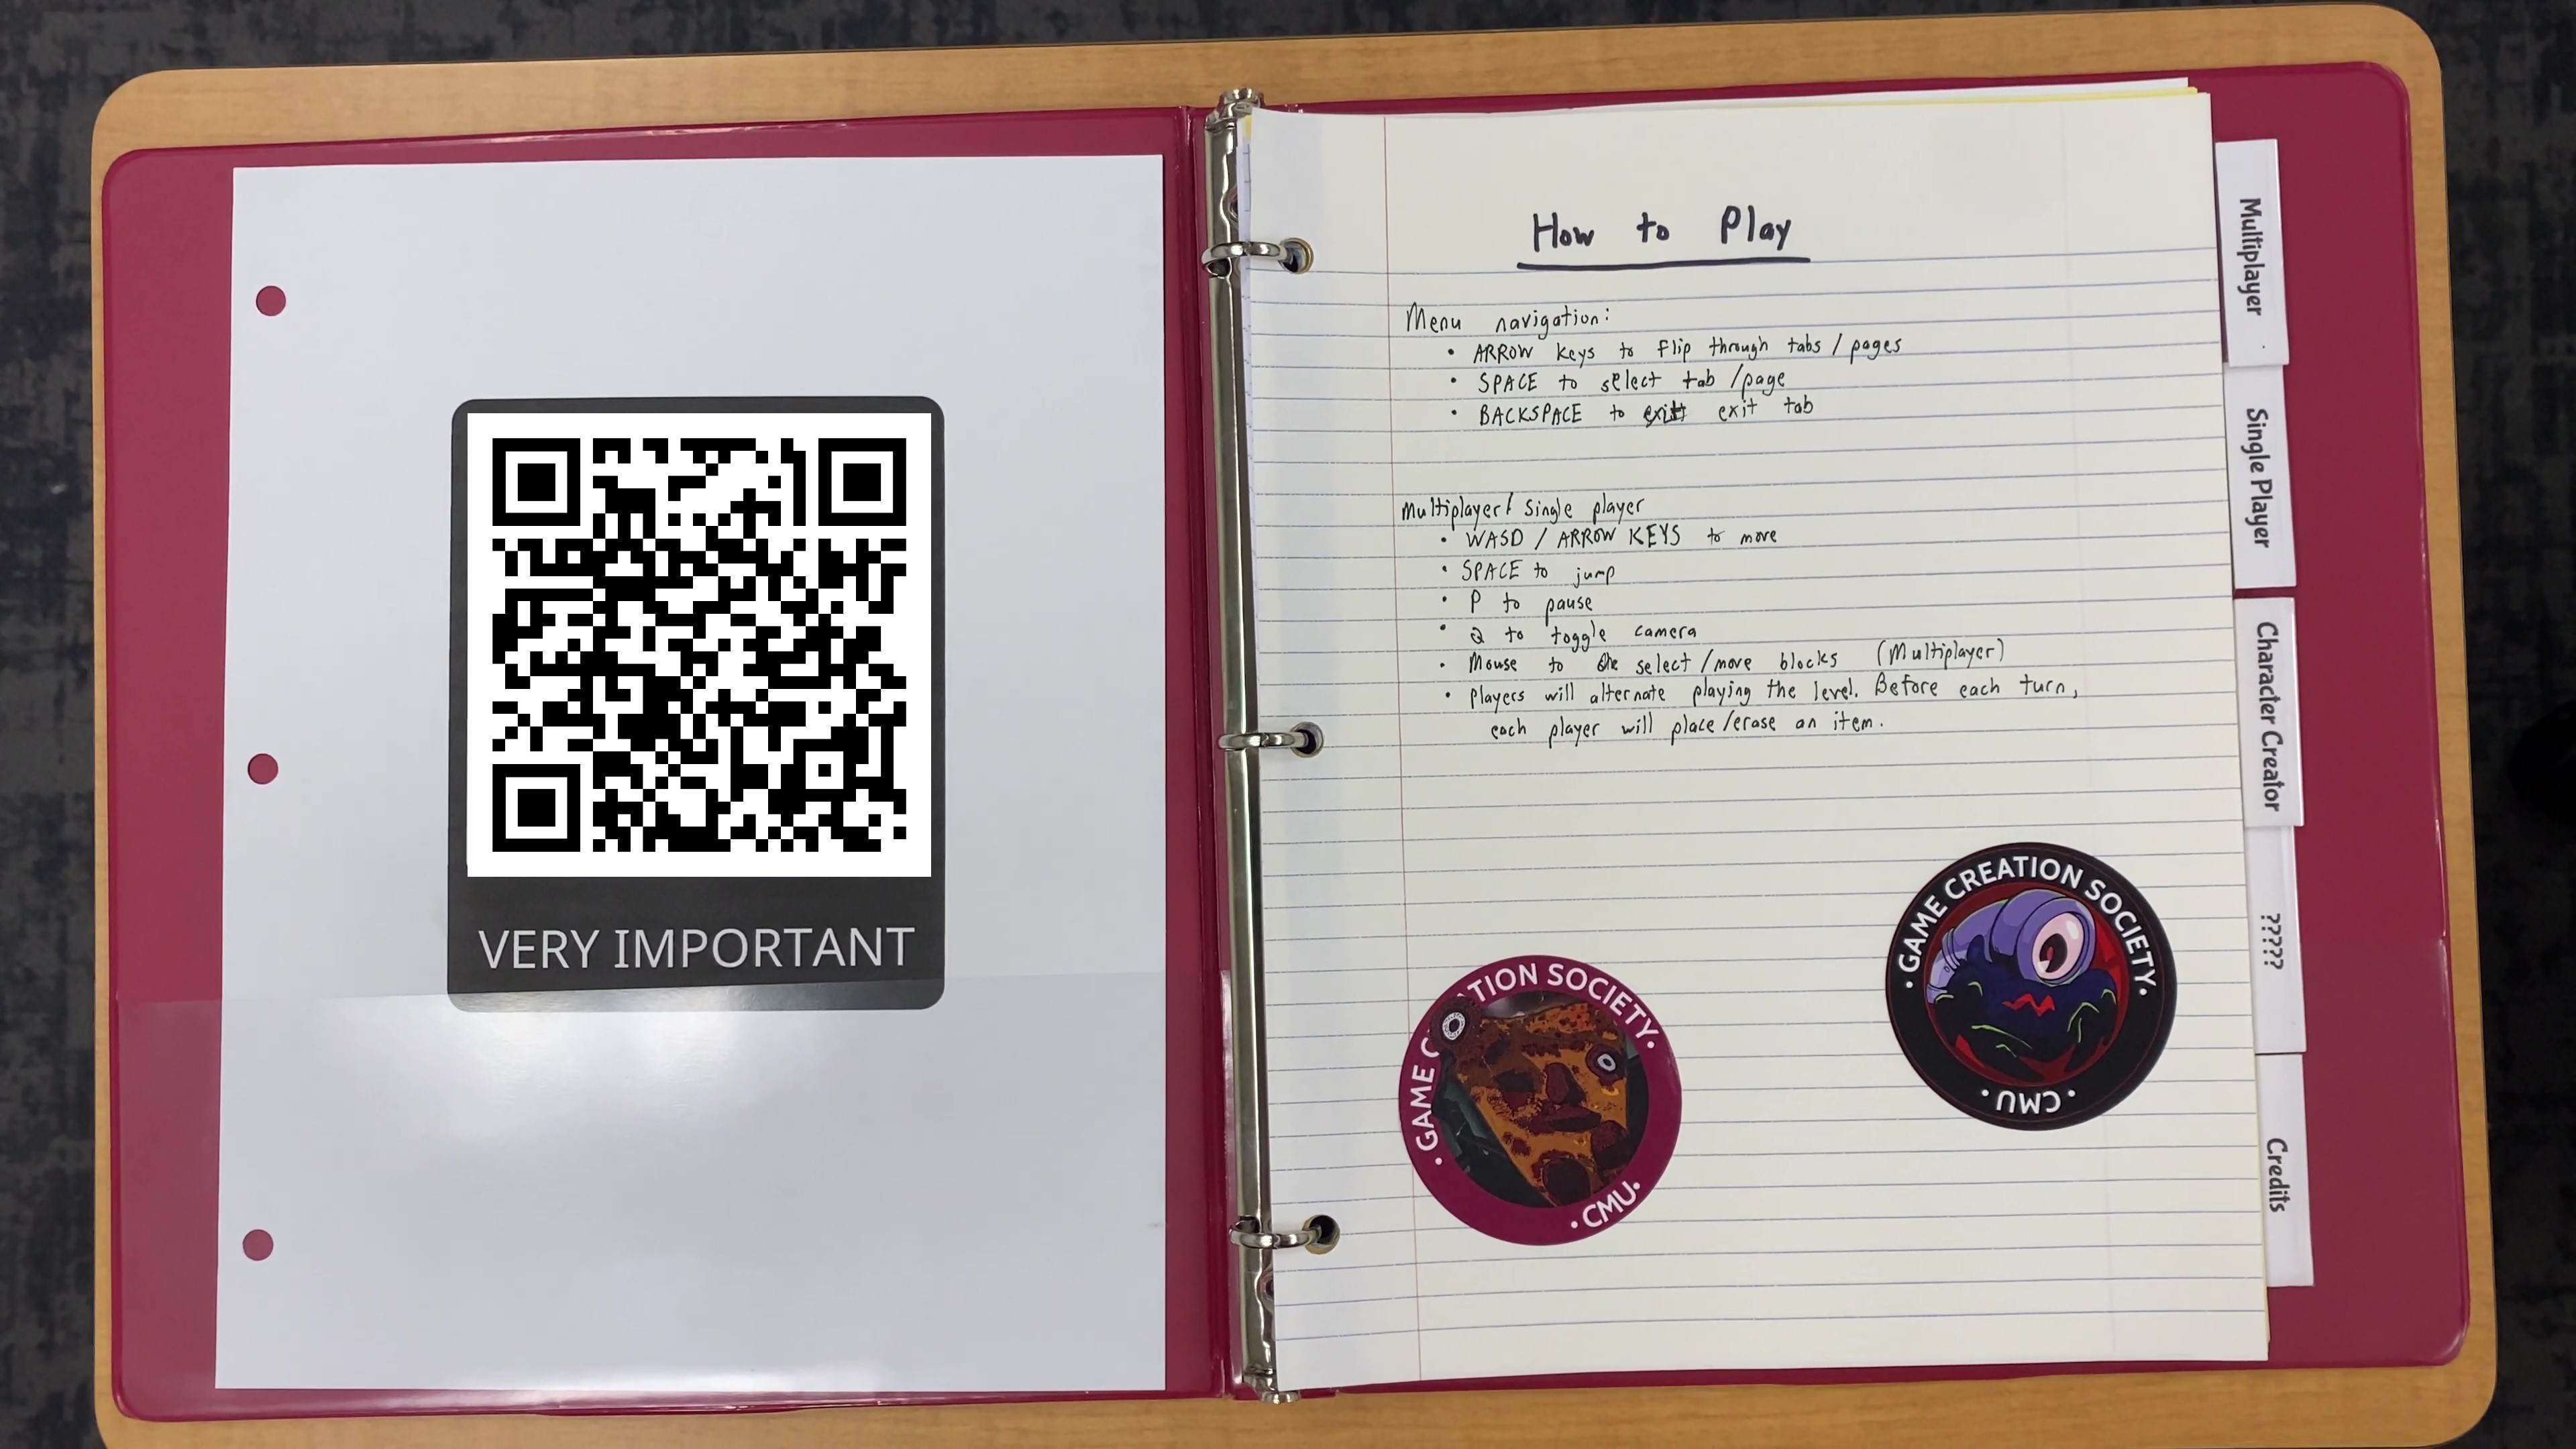 VERY IMPORTANT
How to Play
Menu navigation:
• ARROW keys to flip through tabs / pages
• SPACE to select tab / page
• BACKSPACE to exit exit tab
Multiplayer / Single player
• WASD / ARROW KEYS to move
• SPACE to jump
• P to pause
• Q to toggle camera
• Mouse to select / move blocks (Multiplayer)
• Players will alternate playing the level. Before each turn,
each player will place / erase an item.
• GAME C TION SOCIETY •
• CMU •
• GAME CREATION SOCIETY •
• CMU •
Multiplayer
Single Player
Character Creator
?????
Credits